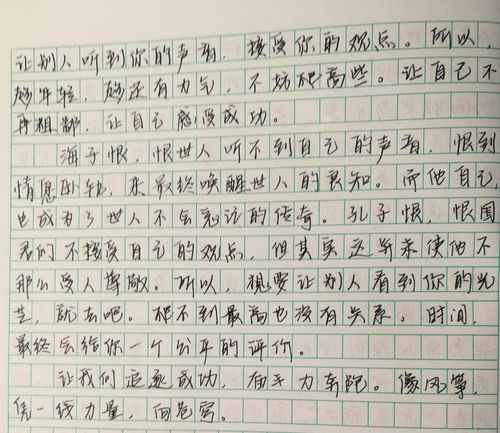 让别人听到你的声音，接受你的观点。所以，
趁年轻，趁还有力气，不妨爬高些。让自己不
再粗鄙，让自己感受成功。
海子恨，恨世人听不到自己的声音，恨到
情愿卧轨，来最终唤醒世人的良知。而他自己，
也成为了世人不会忘记的传奇。孔子恨，恨国
君们不接受自己的观点，但其实这并未使他不
那么受人尊敬。所以，想要让别人看到你的光
芒，就去吧。爬不到最高也没有关系。时间，
最终会给你一个公平的评价。
让我们追逐成功，奋力奔跑。像风筝，
凭一线力量，向苍穹。